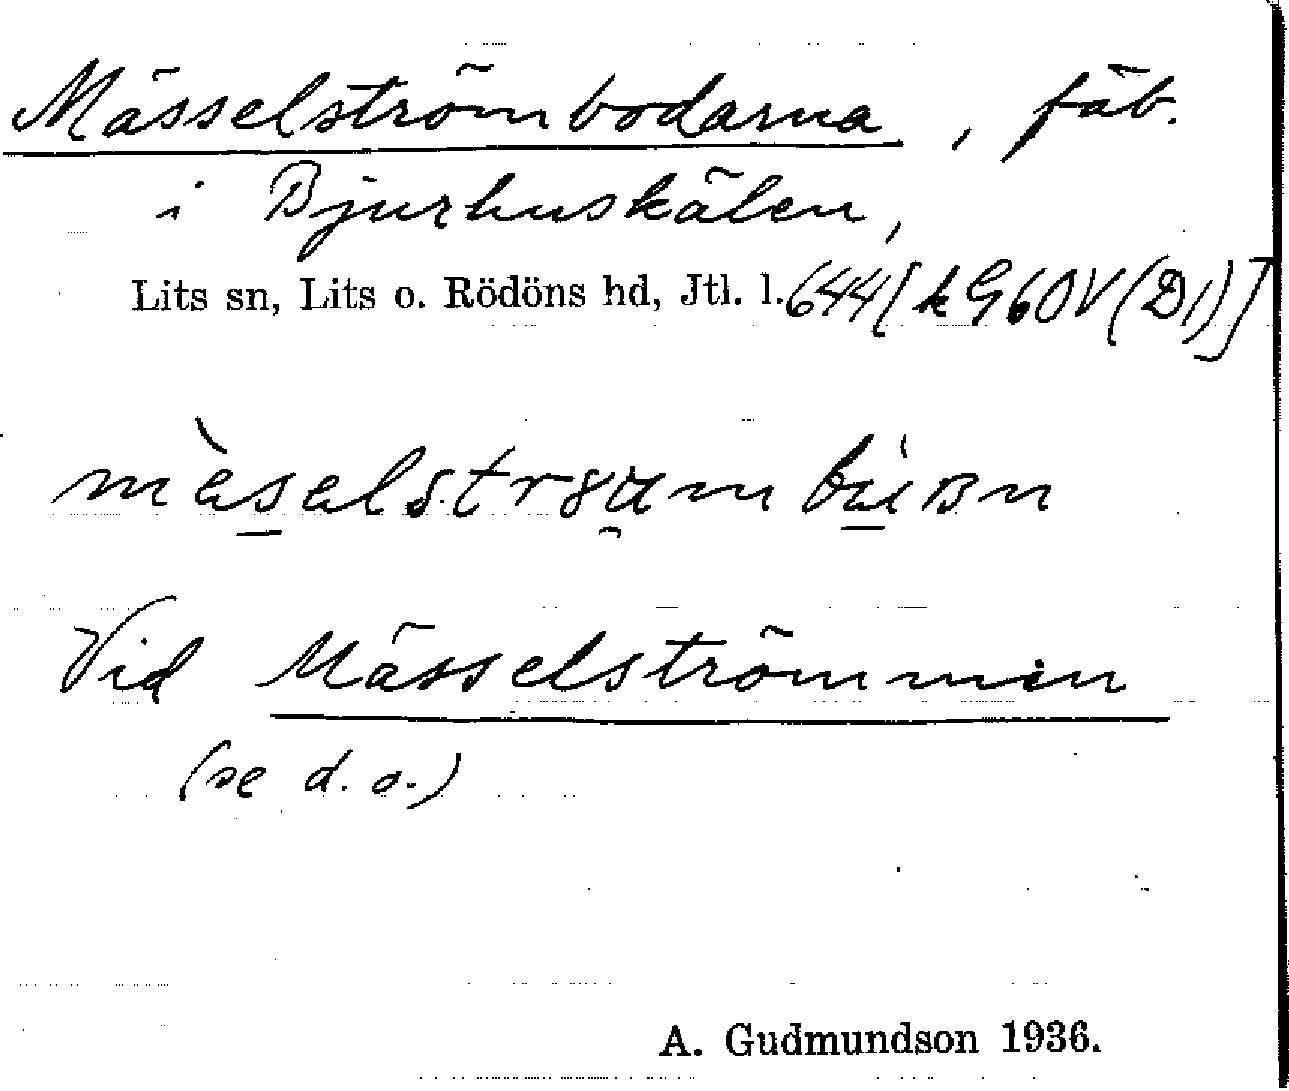 Mässelströmbodarna, fäb.
i Bjurhuskälen,
Lits sn, Lits o. Rödöns hd, Jtl. l. 644 [k G60V (D1)]
Vid Mässelströmmen
(se d. o.)
A. Gudmundson 1936.